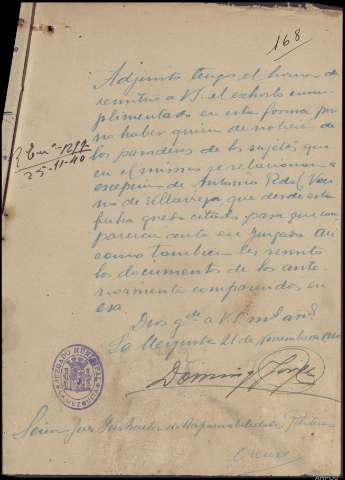 168
Adjunto tengo el honor de
remitir a V.S. el exhorto cum
plimentado en esta forma por
no haber quien de noticias de
los paraderos de los sujetos que
en el mismo se relacionan a
excepción de Antonio Veci
no de Villarreja que desde esta
fecha queda citado para que com
parezca ante ese Juzgado así
como tambien les remito
los documentos de los ante
riormente comparendos en
esa.
Dios gde a V.S. ms ans
La Mezquita 21 de Noviembre 1940
Domingo
25-11-40
JUZGADO MUNICIPAL
LA MEZQUITA
Señor Juez Instructor de Responsabilidades Políticas
Orense